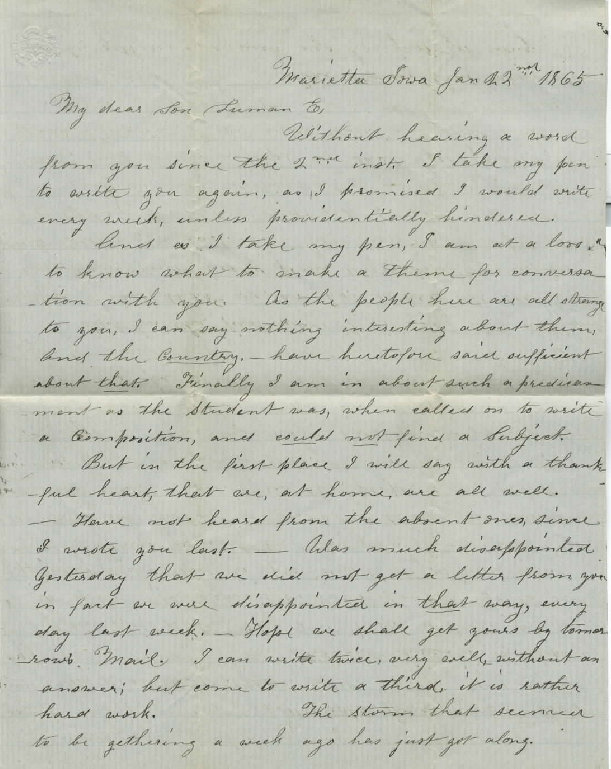 Marietta Iowa Jan 22nd 1865
My dear Son Luman E,
Without hearing a word
from you since the 2nd inst. I take my pen
to write you again, as I promised I would write
every week, unless providentially hindered.
And as I take my pen, I am at a loss
to know what to make a theme for conversa
-tion with you. As the people here are all strange
to you, I can say nothing interesting about them,
And the Country, - have heretofore said sufficient
about that. Finally I am in about such a predica
-ment as the Student was, when called on to write
a Composition, and could not find a Subject.
But in the first place I will say with a thank
-ful heart, that we, at home, are all well.
- Have not heard from the absent ones, since
I wrote you last. - Was much disappointed
Yesterday that we did not get a letter from you
in fact we were disappointed in that way, every
day last week. - Hope we shall get yours by tomor
-row's Mail. I can write twice, very well, without an
answer; but come to write a third, it is rather
hard work. The storm that seemed
to be gethering a week ago has just got along.